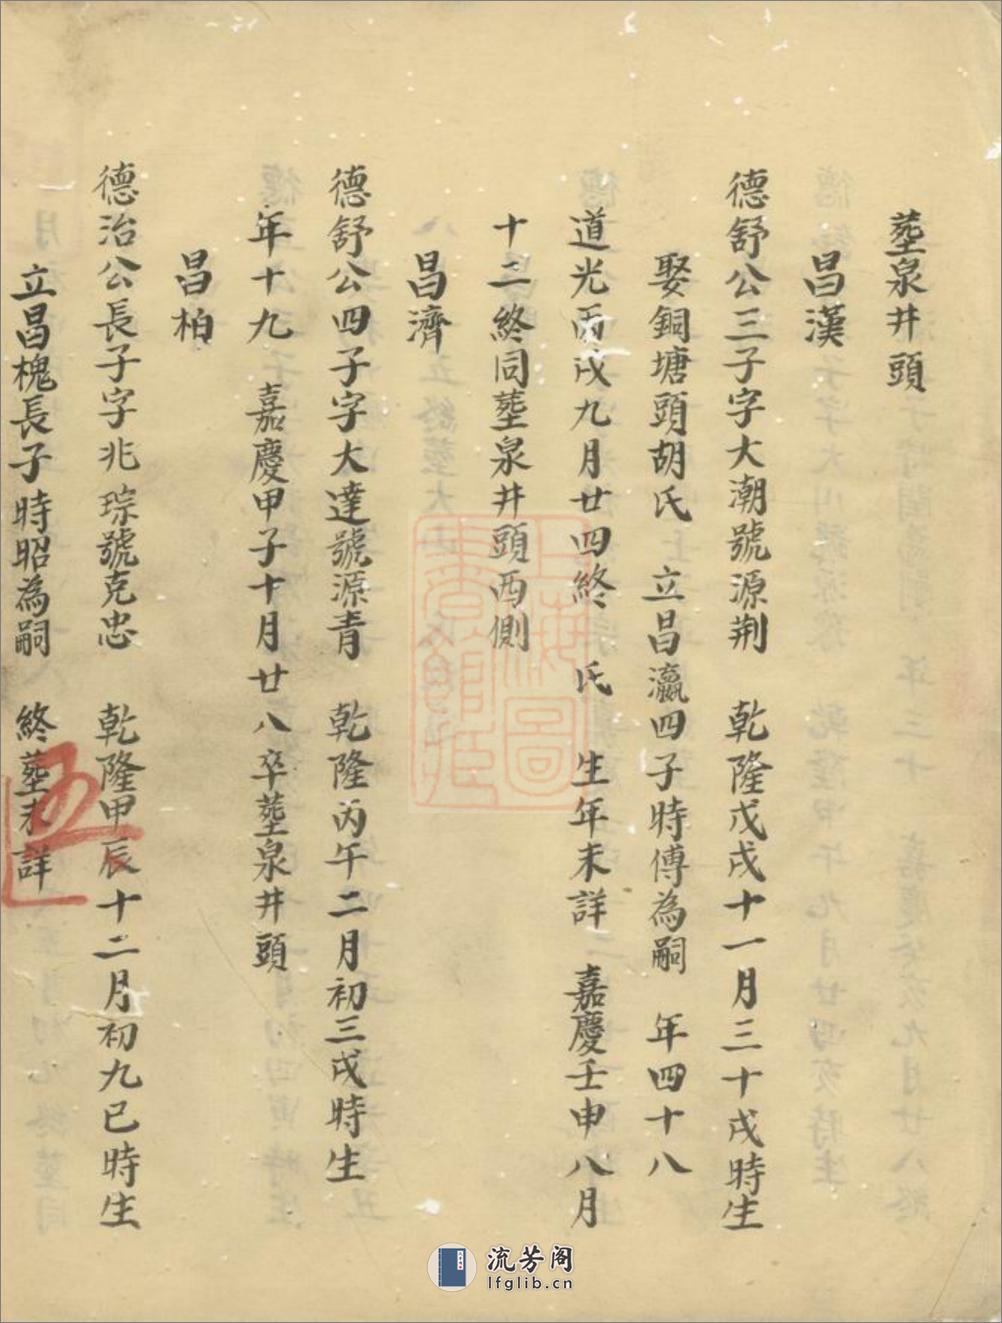 塟泉井頭
昌漢
德舒公三子字大潮號源荆 乾隆戊戌十一月三十戌時生
娶銅塘頭胡氏 立昌瀛四子時傅為嗣 年四十八
道光丙戌九月廿四終 氏 生年未詳 嘉慶壬申八月
十二終同塟泉井頭西側
昌濟
德舒公四子字大達號源青 乾隆丙午二月初三戌時生
年十九 嘉慶甲子十月廿八卒塟泉井頭
昌柏
德治公長子字兆琮號克忠 乾隆甲辰十二月初九巳時生
立昌槐長子時昭為嗣 終塟未詳
上海圖書館藏
流芳阁
lfglib.cn